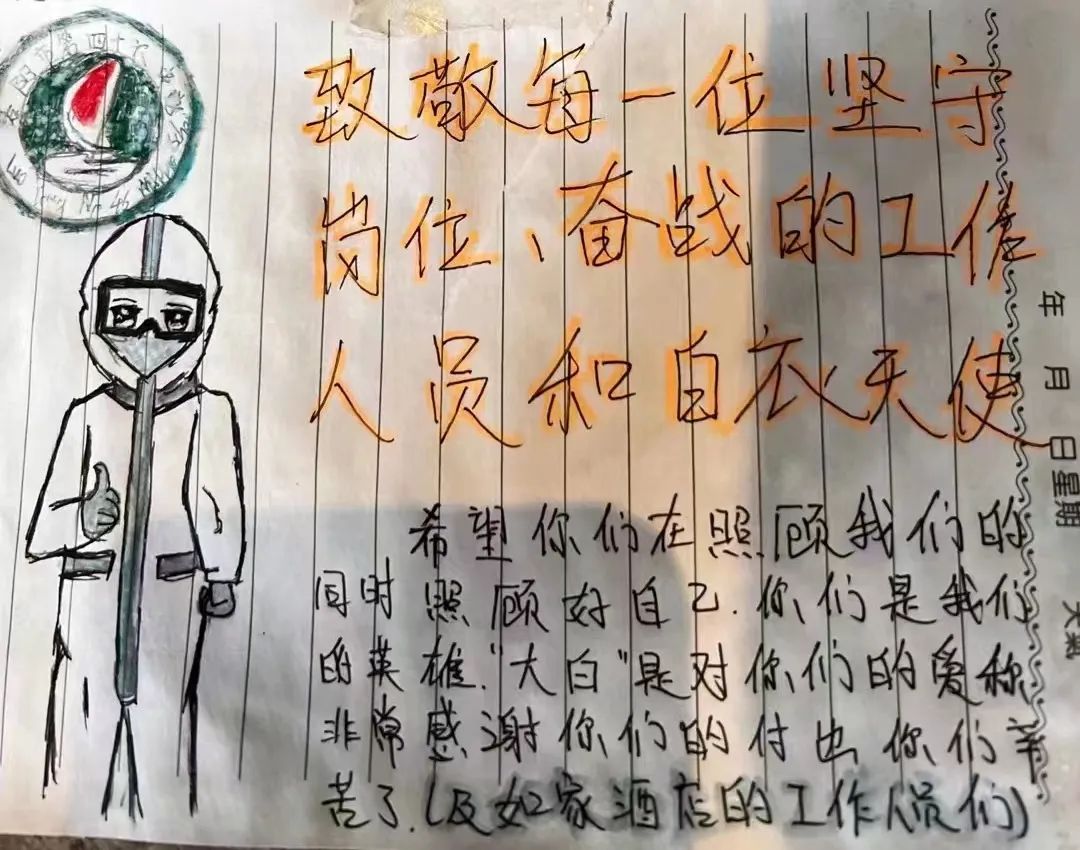 致敬每一位坚守
岗位、奋战的工作
人员和白衣天使
希望你们在照顾我们的
同时照顾好自己.你们是我们
的英雄."大白"是对你们的爱称
非常感谢你们的付出你们辛
苦了.(及如家酒店的工作人员们)
年 月 日星期 天氣